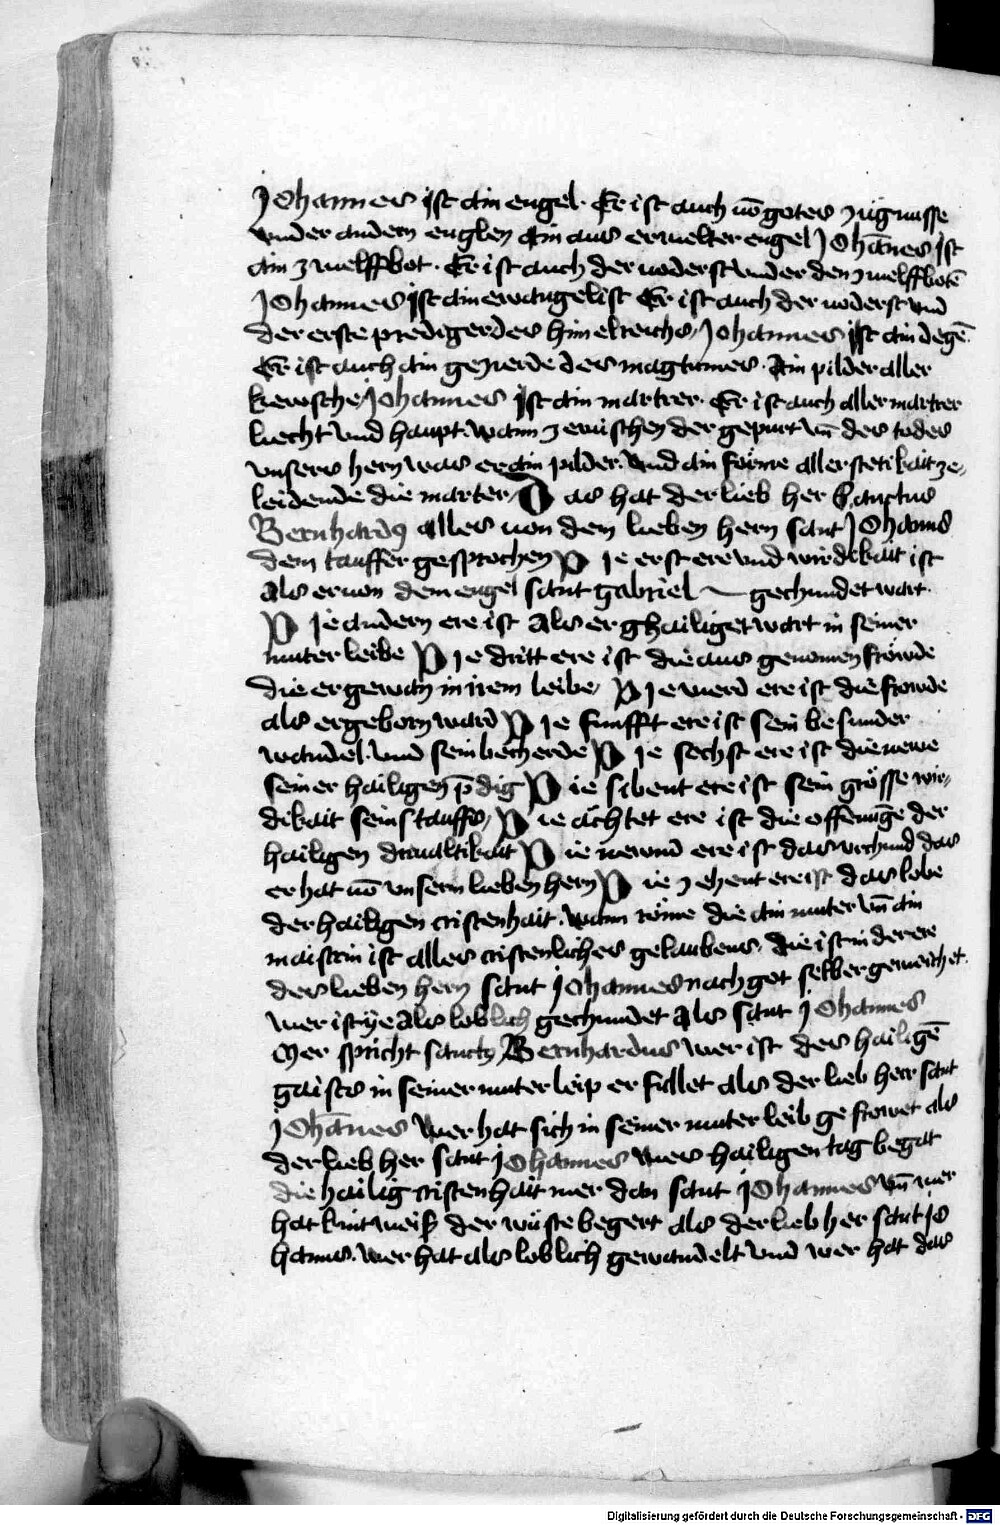 Johannes ist ain engel. Er ist auch võ gotes zügnusse
vnder andern englen ain aus erwelter engel Johãnes ist
ain zwelffbot. Er ist auch der voderst vnder den zwelffbotẽ
Johannes ist ain ewangelist Er ist auch der voderst vnd
der erste prediger des himelreichs, Johannes ist ain degẽ.
Er ist auch ain gezierde des magtumes. Ain pilder aller
kewsche Johannes ist ain martrer. Er ist auch aller martrer
liecht vnd haupt. wann zewischen der gepurt vñ des todes
vnsers hern was er ain pilder. vnd ain forme aller stetikait ze,
leidende die marter, Das hat der lieb her Sanctus
Bernhardꝰ alles von dem lieben hern sant Johanns
dem tauffer gesprochen Die erst ere vnd wirdikait ist
als er von dem engel sant gabriel gechundet wart.
Die andern ere ist als er ghailiget wart in seiner
muter leibe Die dritt ere ist die aus genomen fröwde
die er gewan in irem leibe, Die vierd ere ist die frowde
als er geborn ward Die funfft ere ist sein besunder
wandel. vnd sein becherde Die sechst ere ist die newe
seiner hailigen p̃dig Die sibent ere ist sein grösse wir,
dikait seins tauffs, Die achtet ere ist die offenũge der
hailigen driualtikait Die newnd ere ist das vrchund das
er hat võ vnserm lieben hern Die zehent ere ist das lobe
der hailigen cristenhait. wann röme die ain muter vñ ain
maistrin ist alles cristenliches gelaubens. die ist in der ere
des lieben hern sant Johannes nach got selber geweichet.
wer ist ye als loblich gechundet als sant Johannes
Mer spricht sanctꝰ Bernhardus wer ist des hailigẽ
gaists in seiner muter leip erfüllet als der lieb herr sant
Johãnes Wer hat sich in seiner muter leib gefrowet als
der lieb her sant Johannes wes hailigen tag begat
die hailig cristenhait mer dan sant Johannes vñ wer
hat kint weiß der wüste begert als der lieb her sant Jo
hanns. wer hat als loblich gewandelt vnd wer hat das
Digitalisierung gefördert durch die Deutsche Forschungsgemeinschaft - DFG